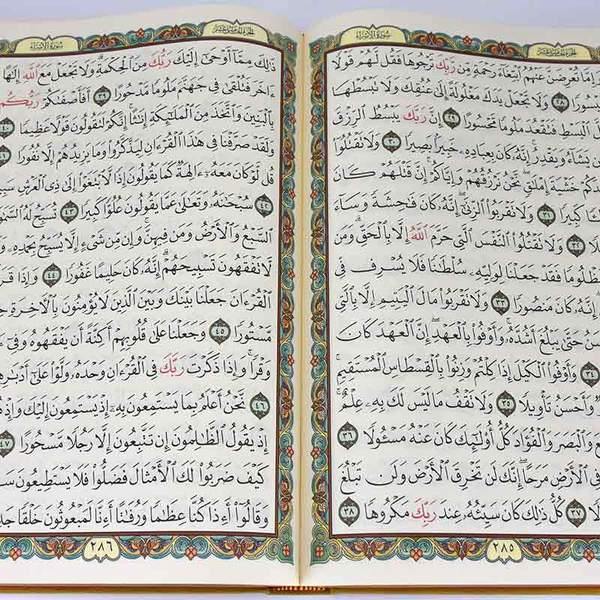 سورة الإسراء
وَإِمَّا تُعْرِضَنَّ عَنْهُمُ ابْتِغَاءَ رَحْمَةٍ مِنْ رَبِّكَ تَرْجُوهَا فَقُلْ لَهُمْ قَوْلًا
٢٨ وَلَا تَجْعَلْ يَدَكَ مَغْلُولَةً إِلَىٰ عُنُقِكَ وَلَا تَبْسُطْهَا
الْبَسْطِ فَتَقْعُدَ مَلُومًا مَحْسُورًا ٢٩ إِنَّ رَبَّكَ يَبْسُطُ الرِّزْقَ
يَشَاءُ وَيَقْدِرُ إِنَّهُ كَانَ بِعِبَادِهِ خَبِيرًا بَصِيرًا ٣٠ وَلَا تَقْتُلُوا
خَشْيَةَ إِمْلَاقٍ نَحْنُ نَرْزُقُهُمْ وَإِيَّاكُمْ إِنَّ قَتْلَهُمْ كَانَ
كَبِيرًا ٣١ وَلَا تَقْرَبُوا الزِّنَا إِنَّهُ كَانَ فَاحِشَةً وَسَاءَ
٣٢ وَلَا تَقْتُلُوا النَّفْسَ الَّتِي حَرَّمَ اللَّهُ إِلَّا بِالْحَقِّ وَمَنْ
مَظْلُومًا فَقَدْ جَعَلْنَا لِوَلِيِّهِ سُلْطَانًا فَلَا يُسْرِفْ فِي
إِنَّهُ كَانَ مَنْصُورًا ٣٣ وَلَا تَقْرَبُوا مَالَ الْيَتِيمِ إِلَّا بِالَّتِي
حَتَّىٰ يَبْلُغَ أَشُدَّهُ وَأَوْفُوا بِالْعَهْدِ إِنَّ الْعَهْدَ كَانَ
٣٤ وَأَوْفُوا الْكَيْلَ إِذَا كِلْتُمْ وَزِنُوا بِالْقِسْطَاسِ الْمُسْتَقِيمِ
وَأَحْسَنُ تَأْوِيلًا ٣٥ وَلَا تَقْفُ مَا لَيْسَ لَكَ بِهِ عِلْمٌ
وَالْبَصَرَ وَالْفُؤَادَ كُلُّ أُولَٰئِكَ كَانَ عَنْهُ مَسْئُولًا ٣٦
فِي الْأَرْضِ مَرَحًا إِنَّكَ لَنْ تَخْرِقَ الْأَرْضَ وَلَنْ تَبْلُغَ
٣٧ كُلُّ ذَٰلِكَ كَانَ سَيِّئُهُ عِنْدَ رَبِّكَ مَكْرُوهًا ٣٨
٢٨٥
سورة الإسراء
ذَٰلِكَ مِمَّا أَوْحَىٰ إِلَيْكَ رَبُّكَ مِنَ الْحِكْمَةِ وَلَا تَجْعَلْ مَعَ اللَّهِ إِلَٰهًا
آخَرَ فَتُلْقَىٰ فِي جَهَنَّمَ مَلُومًا مَدْحُورًا ٣٩ أَفَأَصْفَاكُمْ رَبُّكُمْ
بِالْبَنِينَ وَاتَّخَذَ مِنَ الْمَلَائِكَةِ إِنَاثًا إِنَّكُمْ لَتَقُولُونَ قَوْلًا عَظِيمًا ٤٠
وَلَقَدْ صَرَّفْنَا فِي هَٰذَا الْقُرْآنِ لِيَذَّكَّرُوا وَمَا يَزِيدُهُمْ إِلَّا نُفُورًا ٤١
قُلْ لَوْ كَانَ مَعَهُ آلِهَةٌ كَمَا يَقُولُونَ إِذًا لَابْتَغَوْا إِلَىٰ ذِي الْعَرْشِ
٤٢ سُبْحَانَهُ وَتَعَالَىٰ عَمَّا يَقُولُونَ عُلُوًّا كَبِيرًا ٤٣ تُسَبِّحُ لَهُ
السَّبْعُ وَالْأَرْضُ وَمَنْ فِيهِنَّ وَإِنْ مِنْ شَيْءٍ إِلَّا يُسَبِّحُ بِحَمْدِهِ
لَا تَفْقَهُونَ تَسْبِيحَهُمْ إِنَّهُ كَانَ حَلِيمًا غَفُورًا ٤٤ وَإِذَا
الْقُرْآنَ جَعَلْنَا بَيْنَكَ وَبَيْنَ الَّذِينَ لَا يُؤْمِنُونَ بِالْآخِرَةِ
مَسْتُورًا ٤٥ وَجَعَلْنَا عَلَىٰ قُلُوبِهِمْ أَكِنَّةً أَنْ يَفْقَهُوهُ وَفِي
وَقْرًا وَإِذَا ذَكَرْتَ رَبَّكَ فِي الْقُرْآنِ وَحْدَهُ وَلَّوْا عَلَىٰ
٤٦ نَحْنُ أَعْلَمُ بِمَا يَسْتَمِعُونَ بِهِ إِذْ يَسْتَمِعُونَ إِلَيْكَ
إِذْ يَقُولُ الظَّالِمُونَ إِنْ تَتَّبِعُونَ إِلَّا رَجُلًا مَسْحُورًا ٤٧
كَيْفَ ضَرَبُوا لَكَ الْأَمْثَالَ فَضَلُّوا فَلَا يَسْتَطِيعُونَ
وَقَالُوا أَإِذَا كُنَّا عِظَامًا وَرُفَاتًا أَإِنَّا لَمَبْعُوثُونَ خَلْقًا
٢٨٦